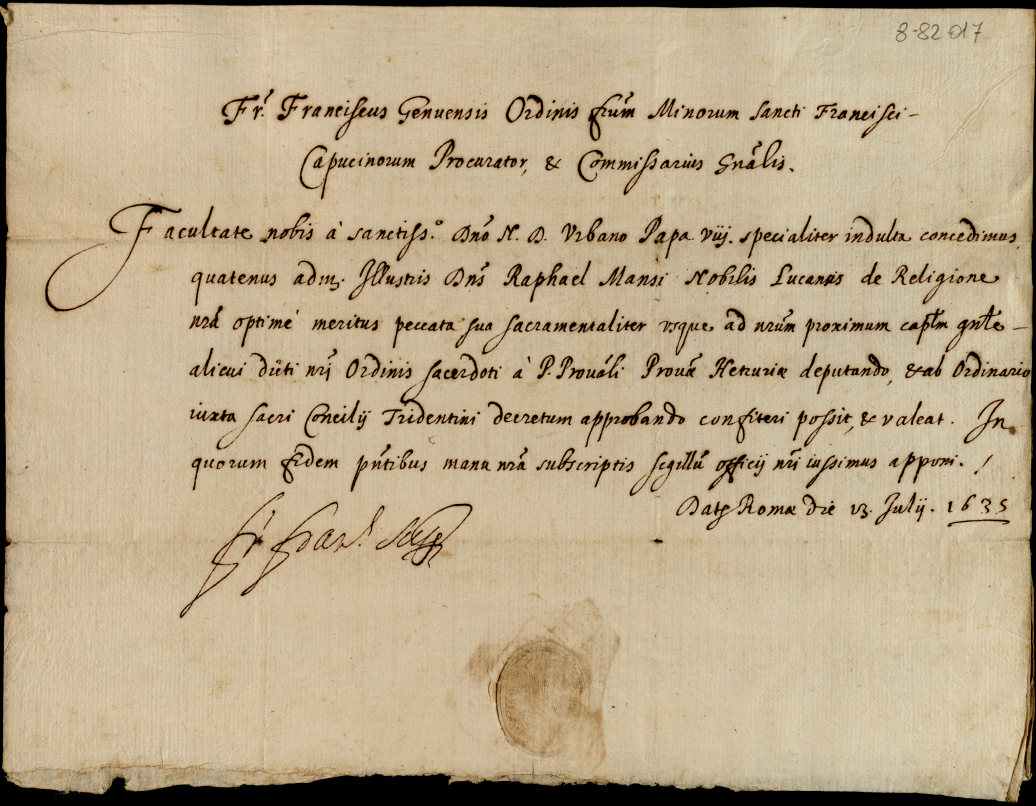 8-82.017
Fr. Franciscus Genuensis Ordinis frum Minorum Sancti Francisci-
Capucinorum Procurator, & Commissarius Gnalis.
Facultate nobis à sanctiss.º Dno N. D. Urbano Papa viij. specialiter indulta concedimus,
quatenus adm. Illustris Dns Raphael Mansi Nobilis Lucansis de Religione
nra optimé meritus peccata sua sacramentaliter usque ad nrum proximum caplm gnle-
alicui dicti nri Ordinis sacerdoti à P. Provali Provae Hetruriae deputando, & ab Ordinario
iuxta sacri Concilij Tridentini decretum approbando confiteri possit, & valeat. In
quorum fidem pntibus manu nra subscriptis sigillu officij nri iussimus apponi. /
Dat Romae die 13. Julij. 1635
fr